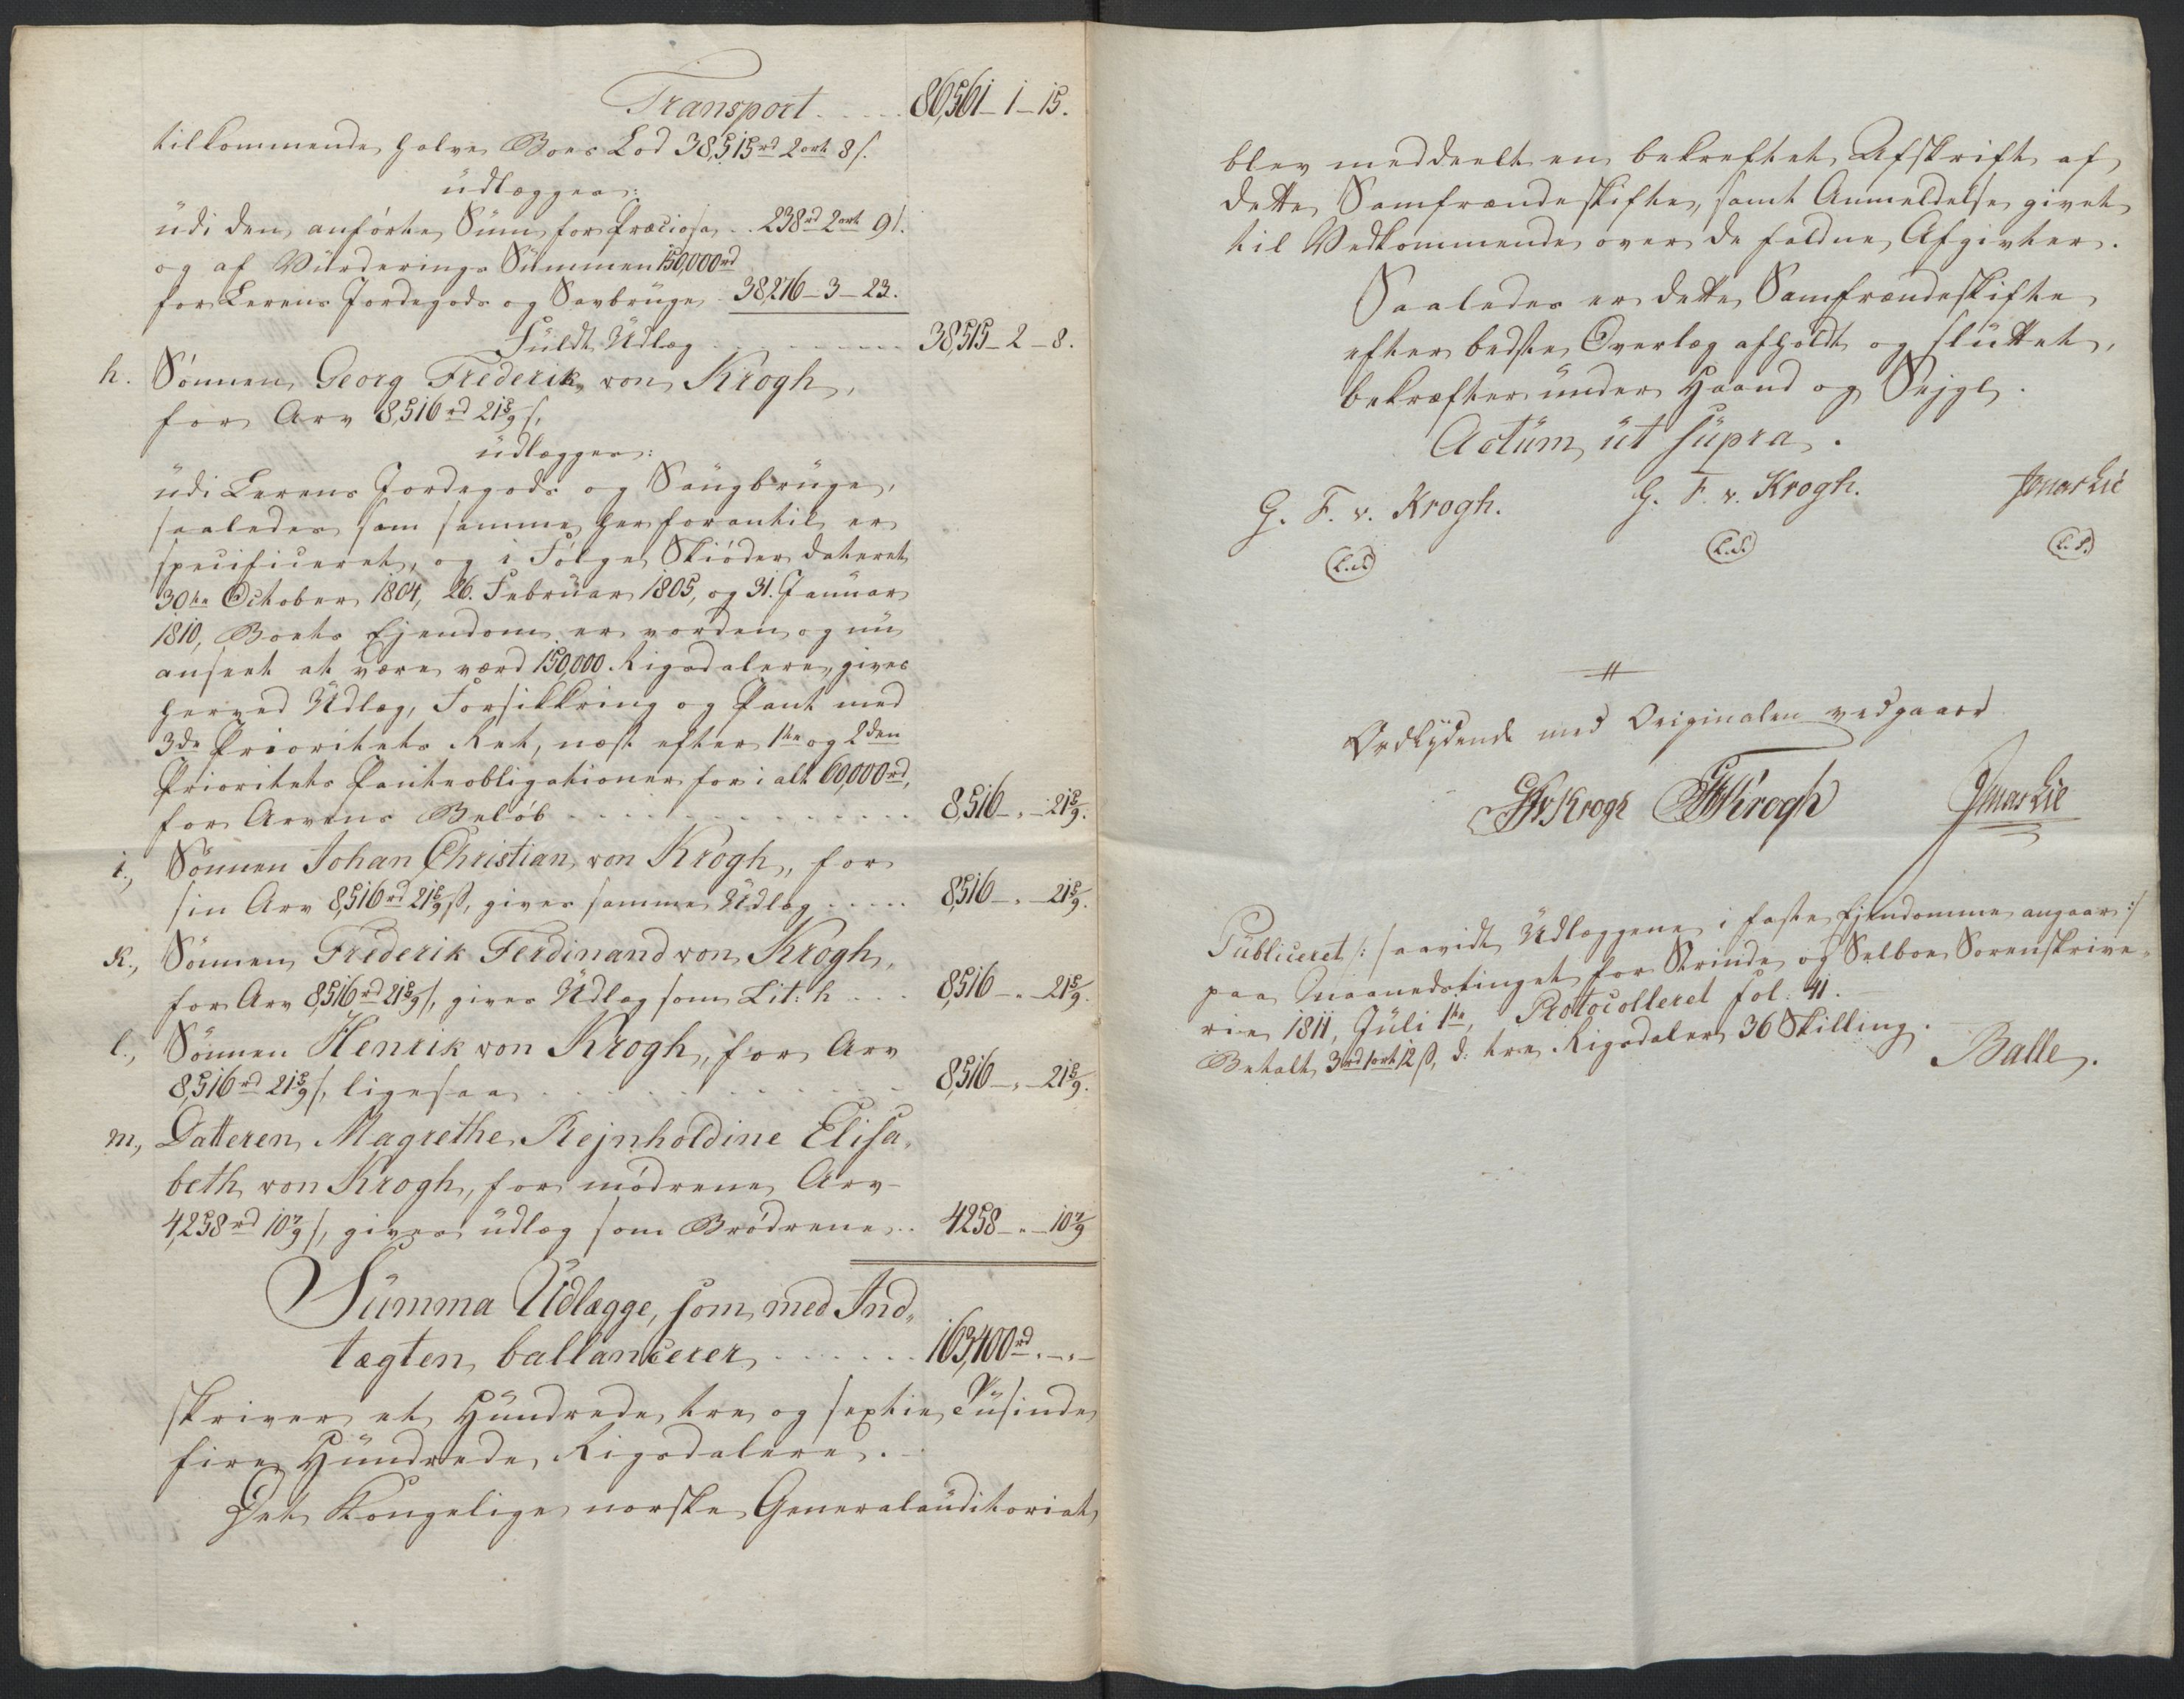 Transport . . . . . 86,561 – 1 – 15.
tilkommende halve Boes Lod 38,515 rd 2 ort 8 s.
udlægges:
udi den anførte Sum for Præciosa . . 238 rd 2 ort 9 s.
og af Vurderings Summen 150,000 rd
for Lerens Jordegods og Savbruge . 38,276 – 3 – 23.
Fuldt Udlæg . . . . . . . . . 38,515 – 2 – 8.
h. Sønnen Georg Frederik von Krogh,
for Arv 8,516 rd 21 5/9 s,
udlægges:
udi Lerens Jordegods og Saugbruge,
saaledes som samme her forantil er
specificeret, og i Følge Skiøder dateret
30te October 1804, 26. Februar 1805, og 31. Januar
1810, Boets Ejendom er vorden og nu
anseet at være værd 150,000 Rigsdalere, gives
herved Udlæg, Forsikkring og Pant med
3de Prioritets Ret, næst efter 1te og 2den
Prioritets Panteobligationer for i alt 60,000 rd,
for Arvens Beløb . . . . . . . . . . . . 8,516 – „ – 21 5/9.
i., Sønnen Johan Christian von Krogh, for
sin Arv 8,516 rd 21 5/9 ß, gives samme Udlæg . . . . . 8,516 – „ – 21 5/9.
K., Sønnen Frederik Ferdinand von Krogh,
for Arv 8,516 rd 21 5/9 s, gives Udlæg som Lit: h . . . 8,516 – „ – 21 5/9.
l., Sønnen Henrik von Krogh, for Arv
8,516 rd 21 5/9 s, ligesaa . . . . . . . . . . 8,516 – „ – 21 5/9.
m., Datteren Magrethe Rejnholdine Elisa„
beth von Krogh, for mødrene Arv
4,258 rd 10 7/9 s, gives udlæg som Brødrene . . 4258 – „ – 10 7/9
Summa Udlægge, som med Ind„
tægten ballancerer . . . . . . . 163,400 rd. – „ –
skriver et Hundrede tre og sextie Tusinde
fire Hundrede Rigsdalere.
Det Kongelige norske Generalauditoriat
blev meddeelt en bekreftet Afskrift af
dette Samfrændeskifte, samt Anmeldelse givet
til Vedkommende over de faldne Afgivter.
Saaledes er dette Samfrændeskifte
efter bedste Overlæg afholdt og sluttet,
bekræfter under Haand og Sejgl.
Actum ut supra.
G. F. v. Krogh. G. F. v. Krogh. Jonas Lie
(L.S.) (L.S.) (L.S.)
Ordlydende med Originalen vedgaaes
GFvKrogh GFvKrogh Jonas Lie
Publiceret /: saavidt Udlæggene i faste Ejendomme angaar :/
paa Maanedstinget for Strinde og Selboe Sorenskrive„
rie 1811, Juli 1te, Protocolleret fol: 41.
Betalt 3 rd 1 ort 12 ß, d: tre Rigsdaler 36 Skilling.
Balle.